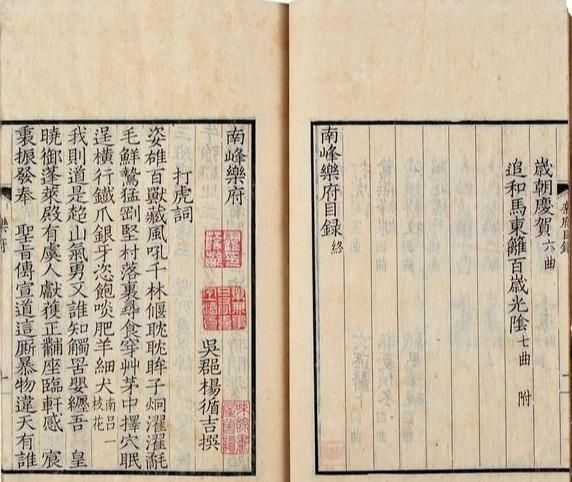 歲朝慶賀六曲
追和馬東籬百歲光陰七曲 附
南峰樂府目錄終
南峰樂府
吳郡楊循吉撰
打虎詞
姿雄百獸藏風吼千林偃眈眈眸子烱濯濯毳
毛鮮鷙猛剛堅村落裏尋食穿艸茅中擇穴眠
逞橫行鐵爪銀牙恣飽啖肥羊細犬南呂一枝花
我則道是超山氣勇又誰知觸罟嬰纏吾 皇
曉御蓬萊殿有虞人獻獲正黼座臨軒感 宸
衷振發奉 聖旨傳宣道這厮暴物違天有誰
樂府